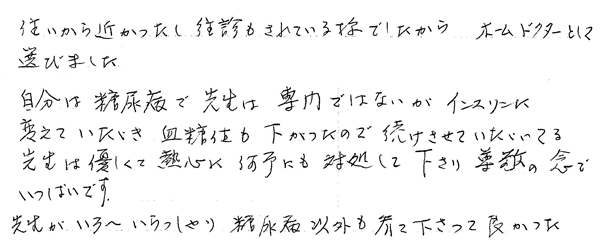 住いから近かったし 往診もされている様でしたから ホームドクターとして
選びました
自分は 糖尿病で 先生は 専門ではないが インスリンに
変えていただき 血糖値も 下がったので 続けさせていただいてる
先生は優しくて 熱心に 何事にも 対処して 下さり 尊敬の念で
いっぱいです。
先生がいろ〜いらっしゃり 糖尿病以外も 診て下さって 良かった